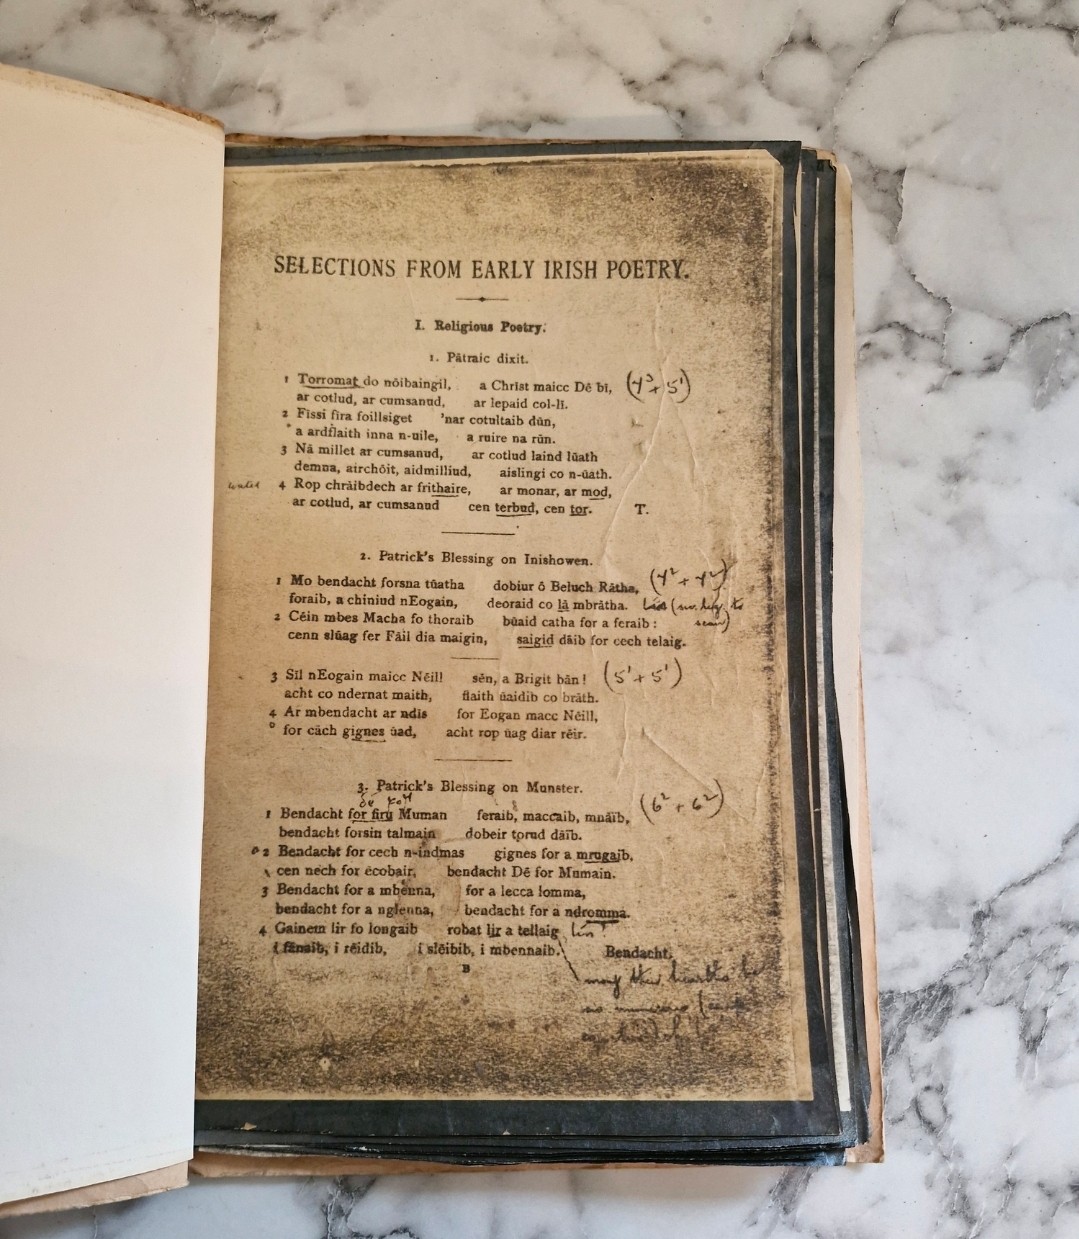 SELECTIONS FROM EARLY IRISH POETRY.
I. Religious Poetry.
1. Pātraic dixit.
1 Torromat do nōibaingil, a Christ maicc Dē bī, (4³ + 5¹)
ar cotlud, ar cumsanud, ar lepaid col-lī.
2 Fīssi fīra foillsiget 'nar cotultaib dūn,
a ardflaith inna n-uile, a ruire na rūn.
3 Nā millet ar cumsanud, ar cotlud laind lūath
demna, airchōit, aidmilliud, aislingi co n-ūath.
4 Rop chrāibdech ar frithaire, ar monar, ar mod,
ar cotlud, ar cumsanud cen terbud, cen tor. T.
2. Patrick's Blessing on Inishowen.
1 Mo bendacht forsna tūatha dobiur ō Beluch Rātha, (4² + 4²)
foraib, a chiniud nEogain, deoraid co lā mbrātha.
2 Cēin mbes Macha fo thoraib būaid catha for a feraib:
cenn slūag fer Fāil dia maigin, saigid dāib for cech telaig.
3 Sīl nEogain maicc Nēill sēn, a Brigit bān! (5¹ + 5¹)
acht co ndernat maith, flaith ūaidib co brāth.
4 Ar mbendacht ar ndīs for Eogan macc Nēill,
for cāch gignes ūad, acht rop ūag diar rēir.
3. Patrick's Blessing on Munster.
1 Bendacht for firu Muman feraib, maccaib, mnāib, (6² + 6²)
bendacht forsin talmain dobeir torud dāib.
2 Bendacht for cech n-indmas gignes for a mrugaib,
cen nech for ēcobair, bendacht Dē for Mumain.
3 Bendacht for a mbenna, for a lecca lomma,
bendacht for a nglenna, bendacht for a ndromma.
4 Gainem lir fo longaib robat lir a tellaig
i fānaib, i rēidib, i slēibib, i mbennaib. Bendacht.
B
may their hearths be